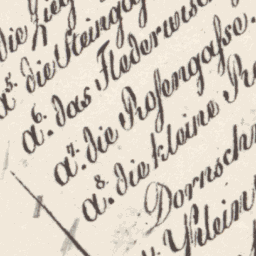 die Zieg
a⁵. die Steingas
a⁶. das Flederwisch
a⁷. die Rosengasse.
a⁸. die kleine
Dornsch
Klein